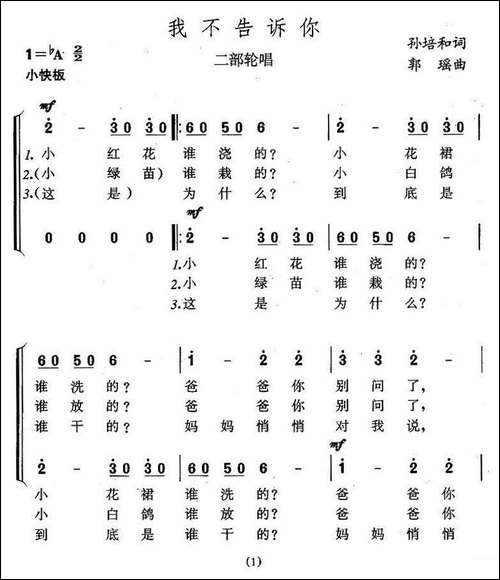 我不告诉你
1=♭A 2/2
二部轮唱
孙培和词
小快板
郭瑶曲
mf
2 - 30 30 |: 60 50 6 - | 2 - 30 30
1. 小 红 花 谁 浇 的? 小 花 裙
2.(小 绿 苗)谁 栽 的? 小 白 鸽
3.(这 是)为 什 么? 到 底 是
mf
0 0 0 0 |: 2 - 30 30 | 60 50 6 -
1.小 红 花 谁 浇 的?
2.小 绿 苗 谁 栽 的?
3.这 是 为 什 么?
60 50 6 - | 1 - 2 2 | 3 3 2 -
谁 洗 的? 爸 爸 你 别 问 了,
谁 放 的? 爸 爸 你 别 问 了,
谁 干 的? 妈 妈 悄 悄 对 我 说,
mf
2 - 30 30 | 60 50 6 - | 1 - 2 2
小 花 裙 谁 洗 的? 爸 爸 你
小 白 鸽 谁 放 的? 爸 爸 你
到 底 是 谁 干 的? 妈 妈 悄 悄
(1)